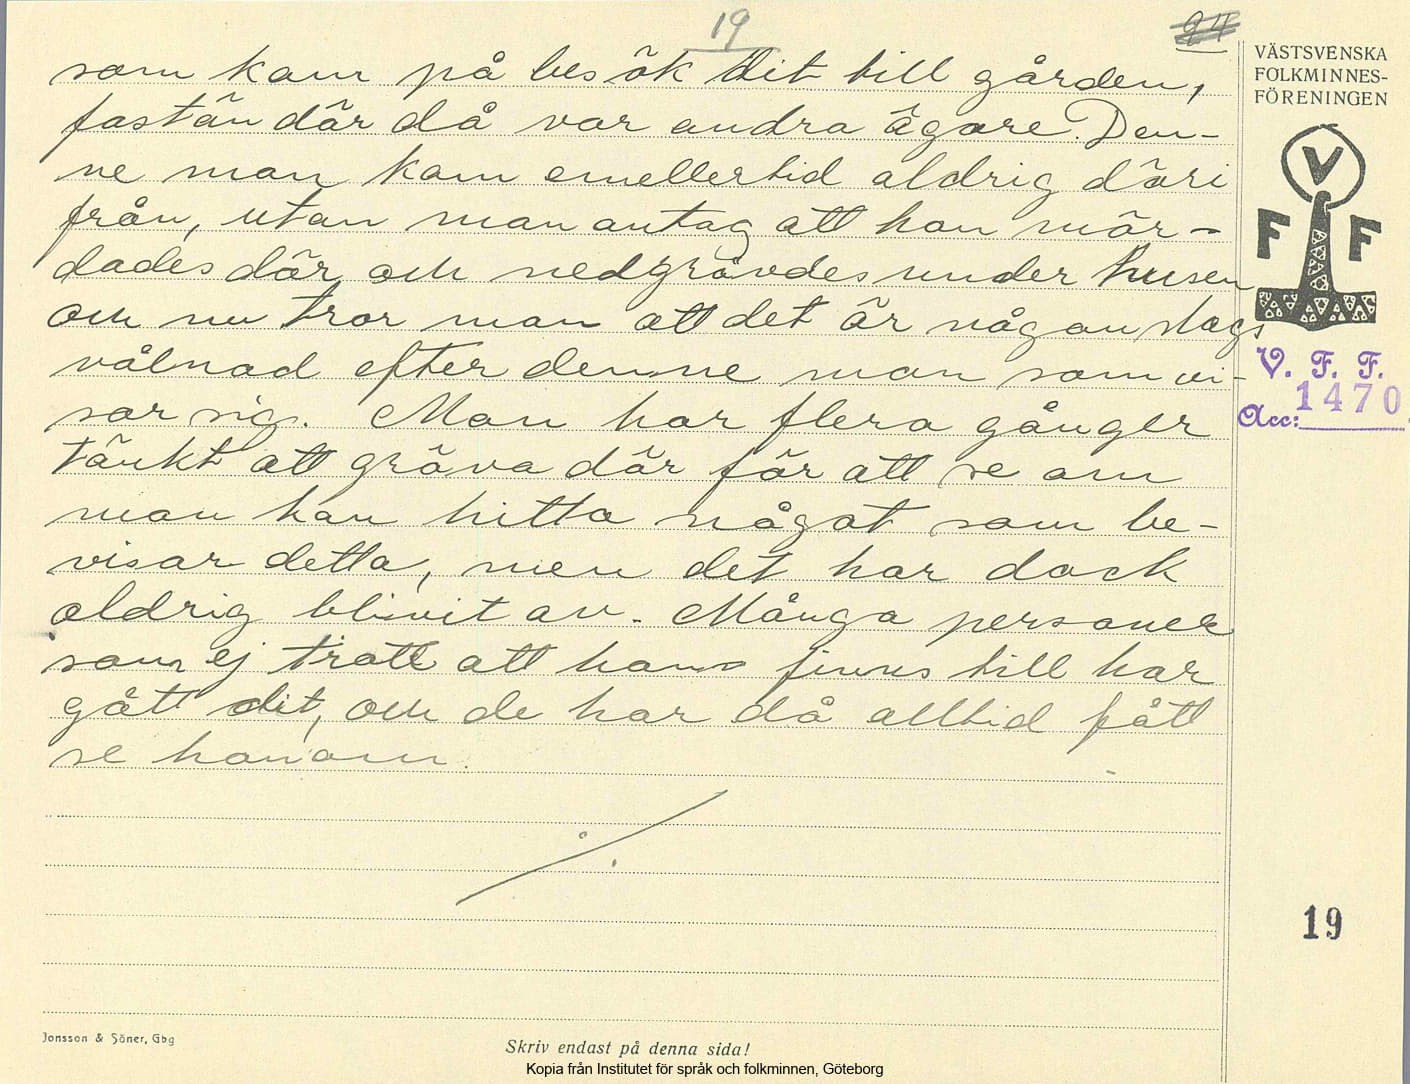 19
24
som kom på besök dit till gården,
fastän där då var andra ägare. Den-
ne man kom emellertid aldrig däri
från, utan man antag att han mör-
dades där och nedgrävdes under husen
och nu tror man att det är någon slags
vålnad efter denne man som vi-
sar sig. Man har flera gånger
tänkt att gräva där för att se om
man kan hitta något som be-
visar detta, men det har dock
aldrig blivit av. Många personer
som ej trott att hans finns till har
gått dit, och de har då alltid fått
se honom.
VÄSTSVENSKA
FOLKMINNES-
FÖRENINGEN
V
F F
V. F. F.
Acc: 1470
19
Jonsson & Söner, Gbg
Skriv endast på denna sida!
Kopia från Institutet för språk och folkminnen, Göteborg